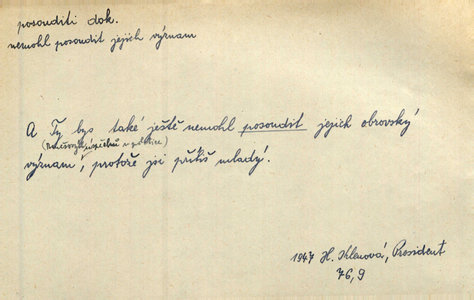 posouditi dok.
nemohl posoudit jejich význam
A Ty bys také ještě nemohl posoudit jejich obrovský
(Masarykových úspěchů v politice)
význam, protože jsi příliš mladý.
1947 H. Klenová, President
76,9